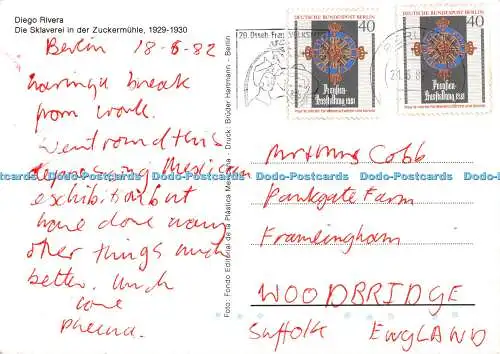 Diego Rivera
Die Sklaverei in der Zuckermühle, 1929-1930
Berlin 18-6-82
having a break
from work.
went round this
depressing Mexican
exhibition but
have done many
other things much
better. Much
love
Foto: Fondo Editorial de la Plástica Mexicana · Druck: Brüder Hartmann - Berlin
DEUTSCHE BUNDESPOST BERLIN
40
Preußen-
Ausstellung 1981
DEUTSCHE BUNDESPOST BERLIN
40
Preußen-
Ausstellung 1981
Mr + Mrs Cobb
Parkgate Farm
Framlingham
WOODBRIDGE
Suffolk ENGLAND
Dodo-Postcards Dodo-Postcards Dodo-Postcards Dodo-Postcards